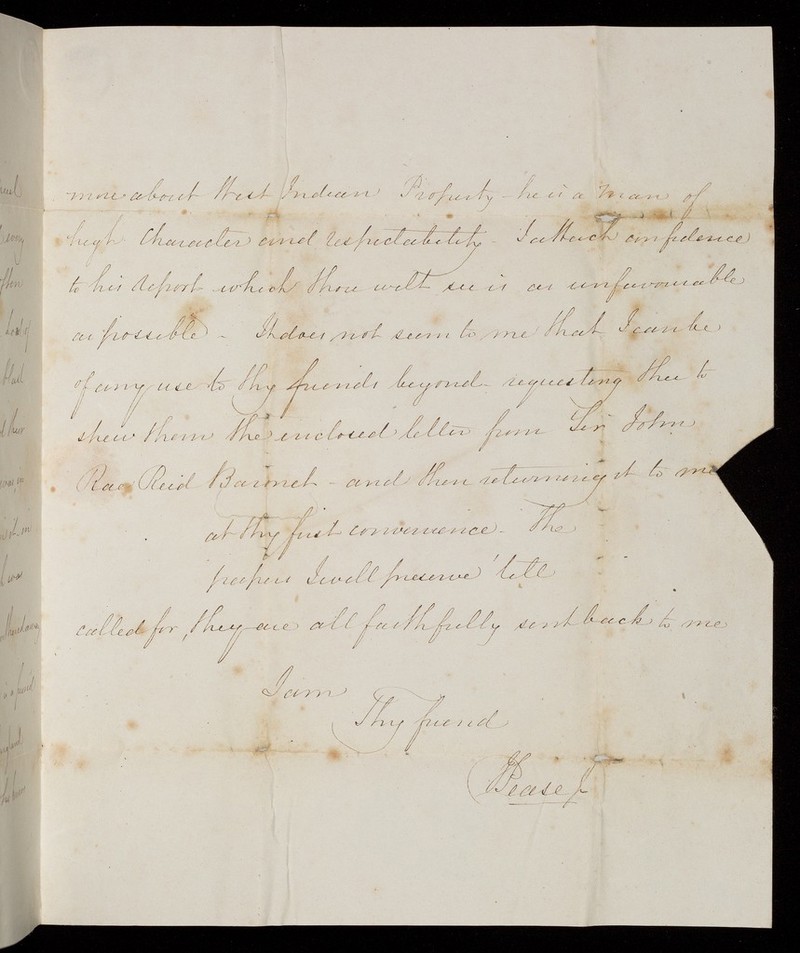 more about West Indian Property - he is a man of
high Character and respectability - I attach confidence
to his report which thou wilt see is as unfavourable
as possible - It does not seem to me that I can be
of any use to thy friends beyond requesting thee to
shew them the enclosed letter from Sir John
Rae Reid Baronet - and then returning it to me
at thy first convenience - The
papers I will preserve 'till
called for, they are all faithfully sent back to me
I am
Thy friend
Pease